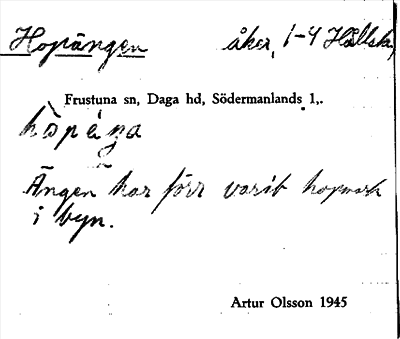 Hopängen åker, 1-4 Hållsta,
Frustuna sn, Daga hd, Södermanlands l,.
Ängen har förr varit hopmark
i byn.
Artur Olsson 1945